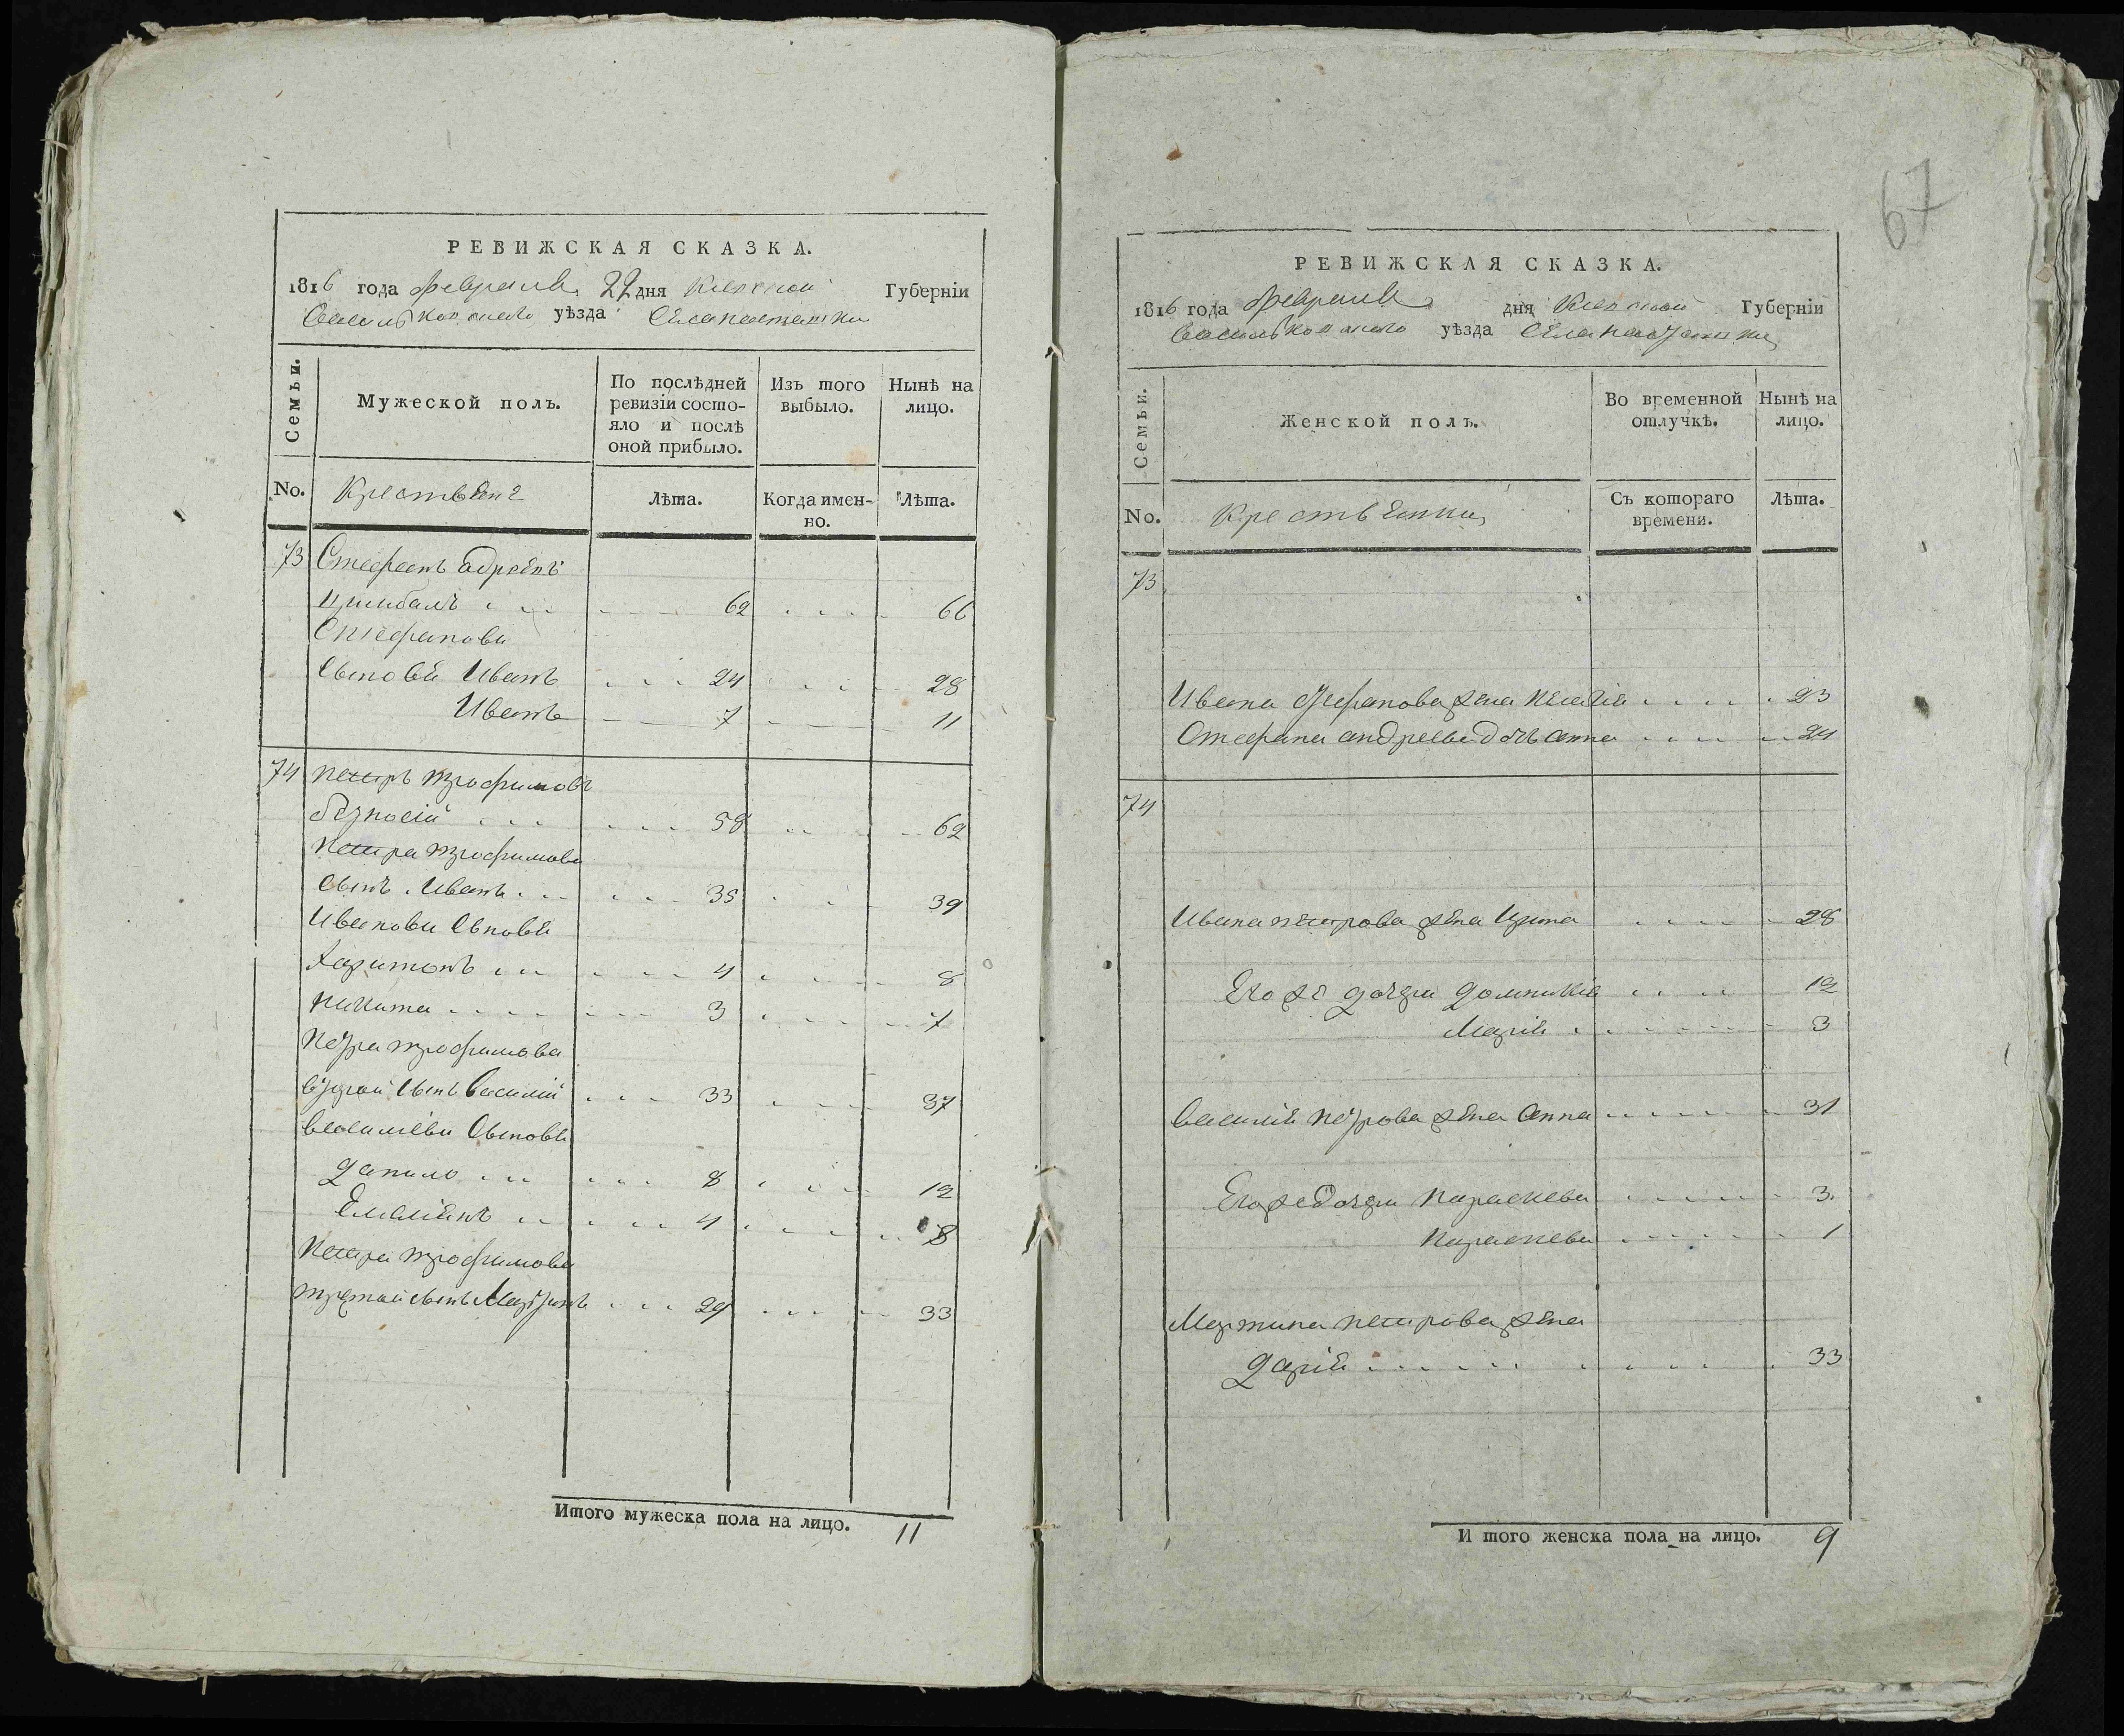 РЕВИЖСКАЯ СКАЗКА.
1816 года февраля 22 дня Киевской Губерніи
Васильковского уѣзда Села пастишки
Семьи.
Мужеской полъ.
По послѣдней ревизіи состояло и послѣ оной прибыло.
Изъ того выбыло.
Нынѣ на лицо.
No.
Крестьяне
Лѣта.
Когда именно.
Лѣта.
73 Стефанъ
Цимбалъ 62 66
Стефанова
Сыновья Иванъ 24 28
Иванъ 7 11
74 петръ трофимовъ
безносій 58 62
петра трофимова
Сынъ Иванъ 35 39
Иванови Сыновья
Харитонъ 4 8
никита 3 7
Петра трофимова
вторай Сынъ Василій 33 37
василіеви Сыновья
данило 8 12
Емеліянъ 4 8
петра трофимова
третій Сынъ Мартинъ 29 33
Итого мужеска пола на лицо. 11
67
РЕВИЖСКАЯ СКАЗКА.
1816 года февраля дня Киевской Губерніи
Васильковского уѣзда Села пастишки
Семьи.
Женской полъ.
Во временной отлучкѣ.
Нынѣ на лицо.
No.
Крестьянки
Съ котораго времени.
Лѣта.
73
Ивана стефанова жена пелагія 23
Стефана андреева дочь анна 24
74
Ивана петрова жена Ирина 28
Его же дочери домникія 12
Марія 3
василія петрова жена анна 31
Его же дочери параскева 3
параскева 1
Мартина петрова жена
дарія 33
И того женска пола на лицо. 9